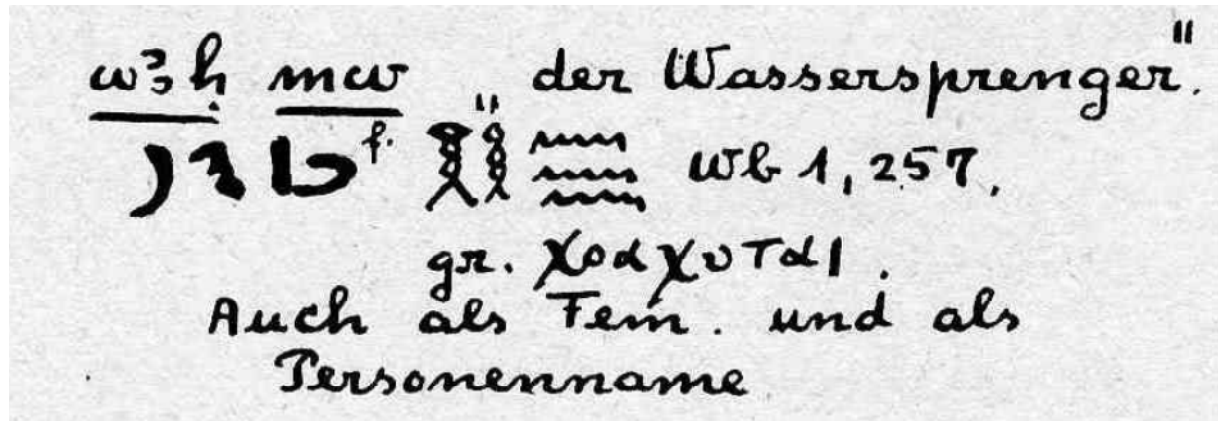 wꜣḥ mw „der Wassersprenger".
f. 𓎝𓎛𓈗 Wb 1, 257,
gr. χοαχυται.
Auch als Fem. und als
Personenname